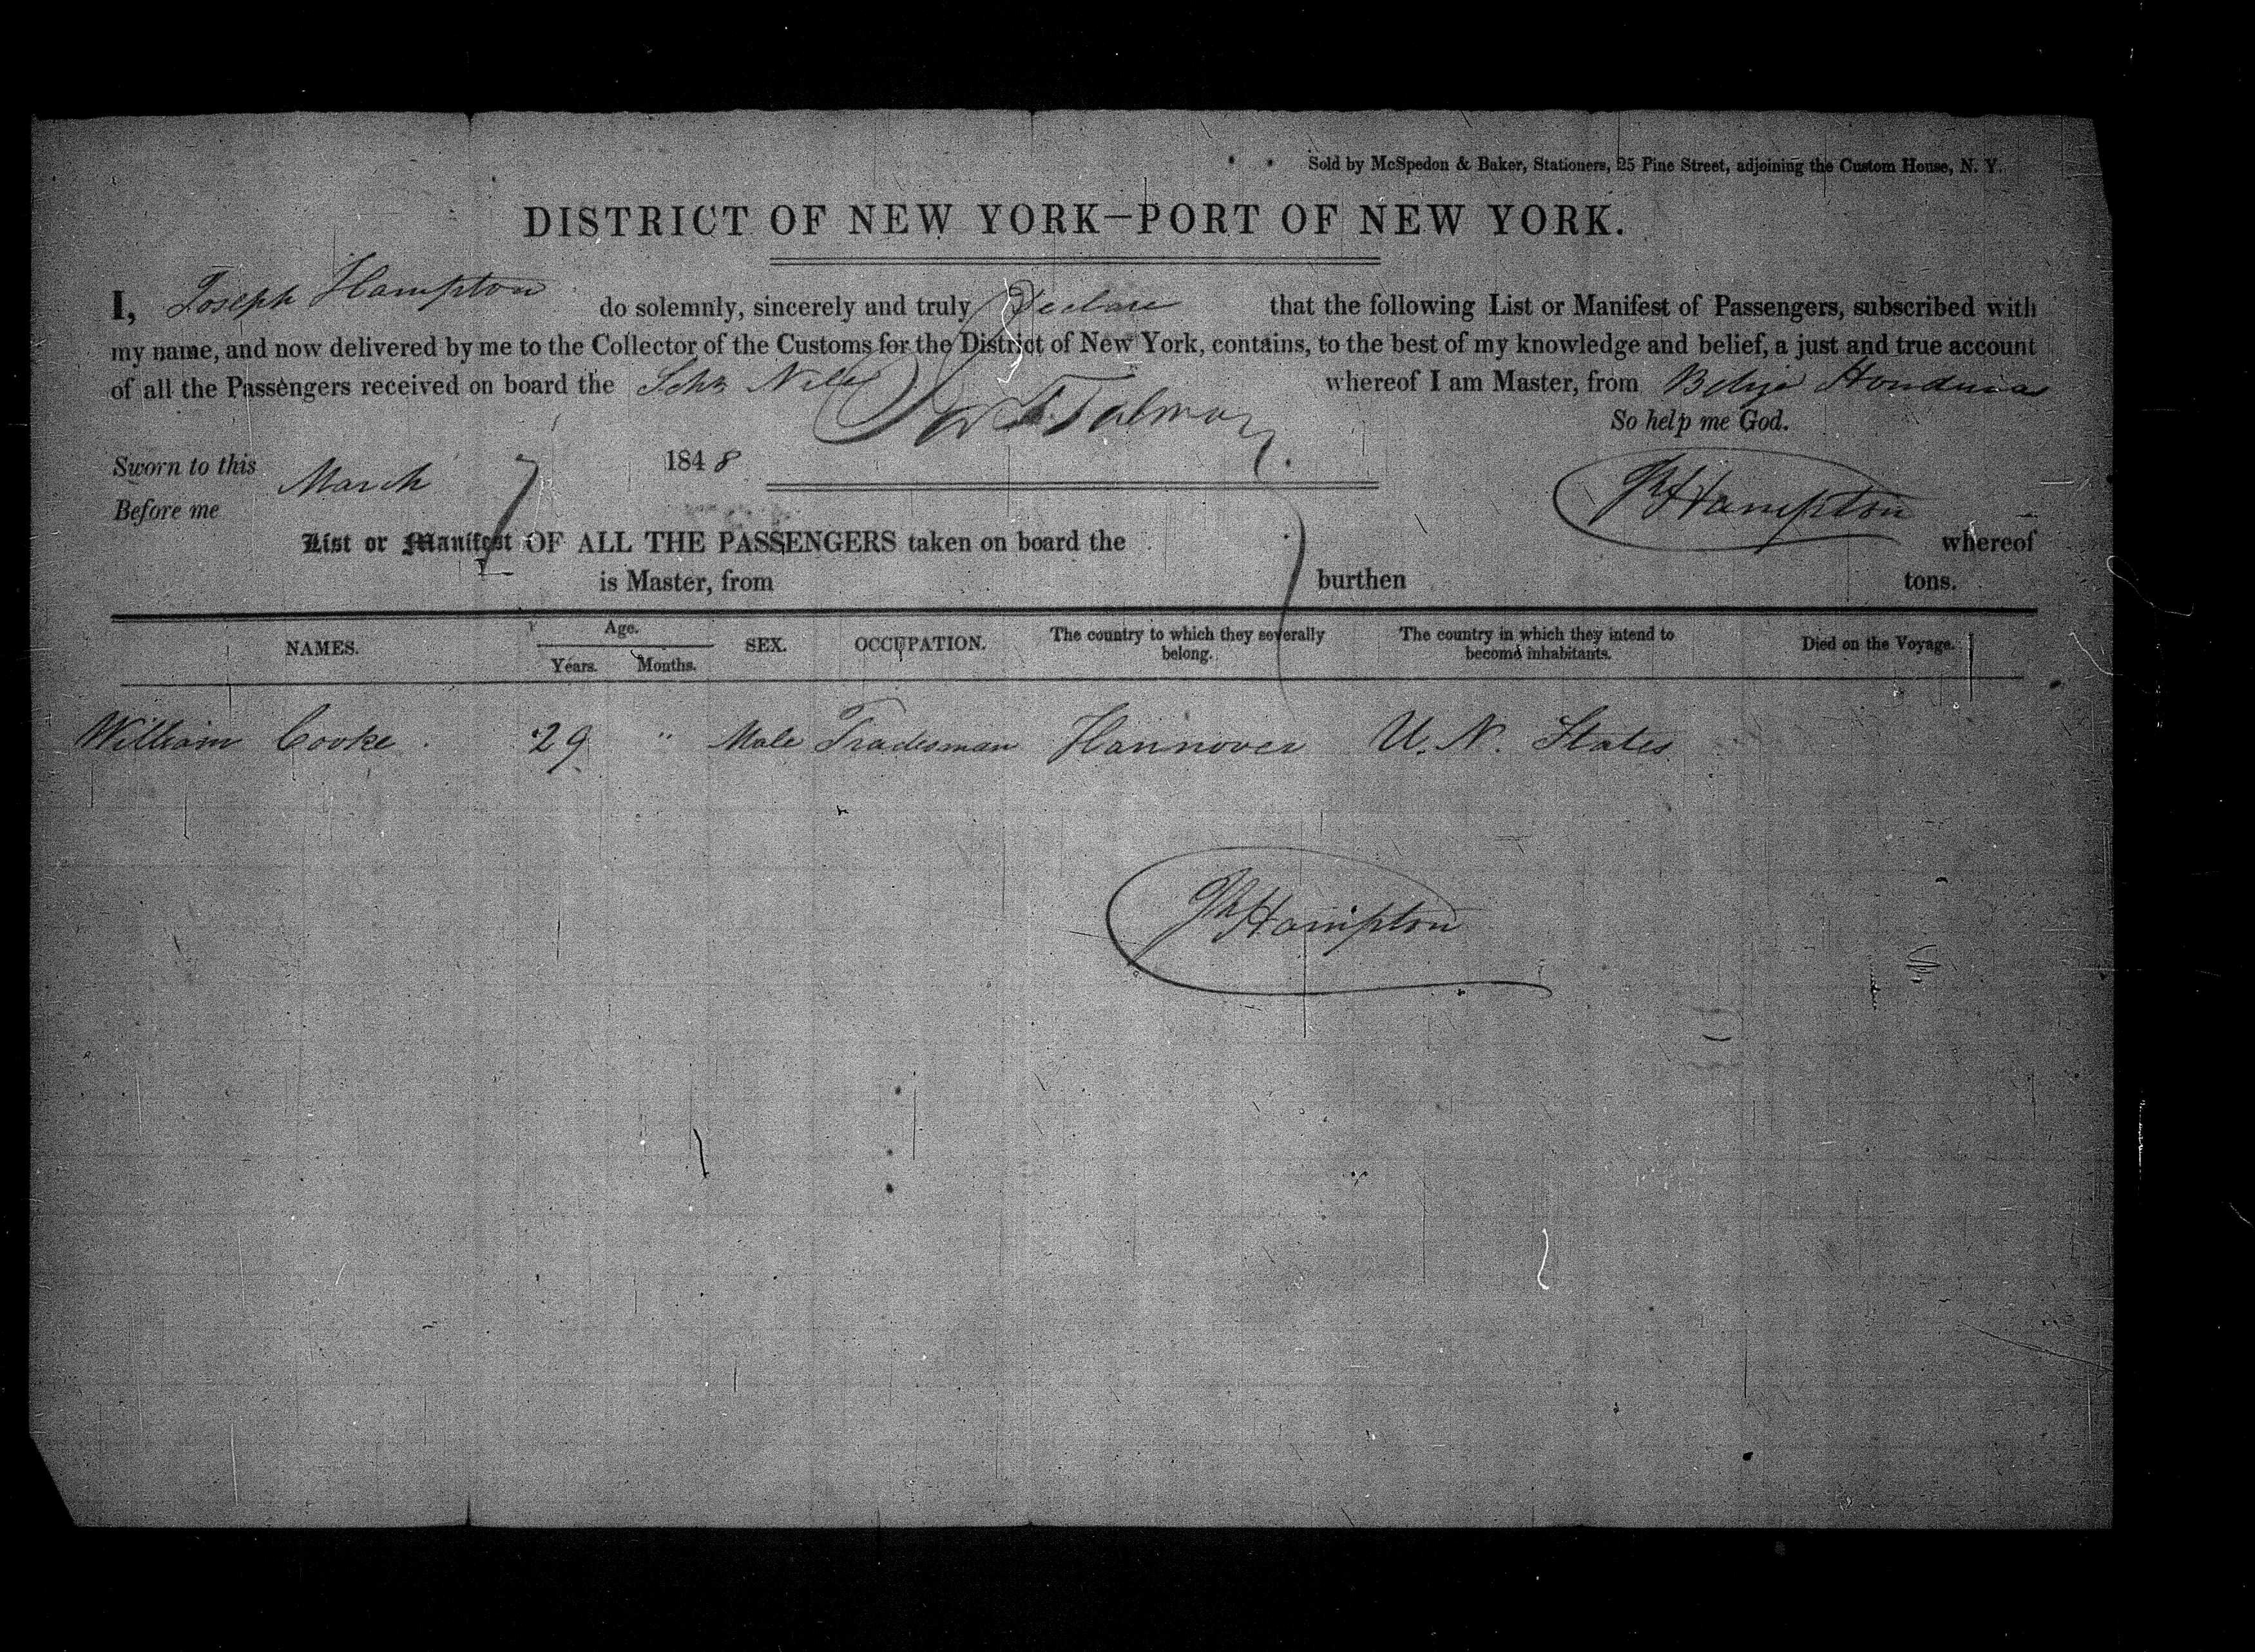 Sold by McSpedon & Baker, Stationers, 25 Pine Street, adjoining the Custom House, N. Y.
DISTRICT OF NEW YORK—PORT OF NEW YORK.
I, Joseph Hampton do solemnly, sincerely and truly Declare that the following List or Manifest of Passengers, subscribed with
my name, and now delivered by me to the Collector of the Customs for the District of New York, contains, to the best of my knowledge and belief, a just and true account
of all the Passengers received on board the Schr whereof I am Master, from Belize Honduras
So help me God.
Sworn to this March 7 1848
Before me
Hampton
List or Manifest OF ALL THE PASSENGERS taken on board the whereof
is Master, from burthen tons.
NAMES. Age. Years. Months. SEX. OCCUPATION. The country to which they severally belong. The country in which they intend to become inhabitants. Died on the Voyage.
William Cooke. 29 " Male Tradesman Hannover U. N. States
Hampton